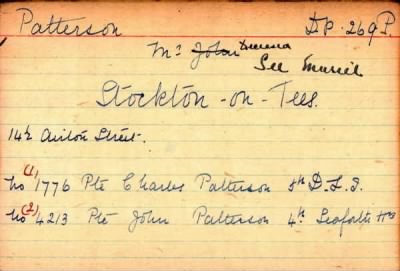 Patterson DP. 269P.
Mr John Dreena
See Muriel
Stockton-on-Tees.
142 Street.
(1)
No 1776 Pte Charles Patterson 5th D.L.I.
(2)
No 4213 Pte John Patterson 4th Seaforth Hrs